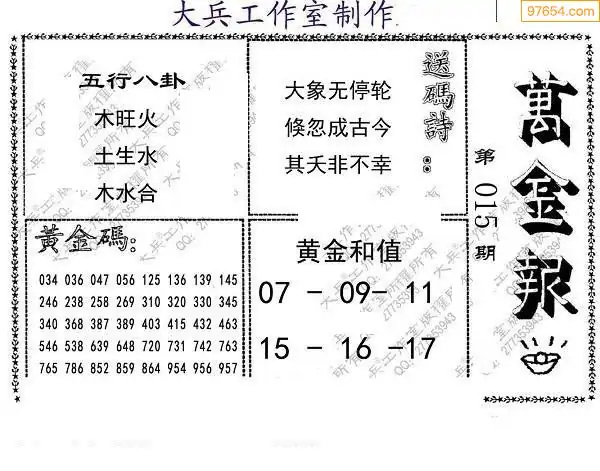 大兵工作室制作
97654.com
萬金報
第015期
送碼詩：
大象无停轮
倏忽成古今
其夭非不幸
五行八卦
木旺火
土生水
木水合
黃金碼:
034 036 047 056 125 136 139 145
246 238 258 269 310 320 330 345
340 368 387 389 403 415 432 463
546 538 639 648 720 731 742 763
765 786 852 859 864 954 956 957
黄金和值
07 - 09- 11
15 - 16 -17